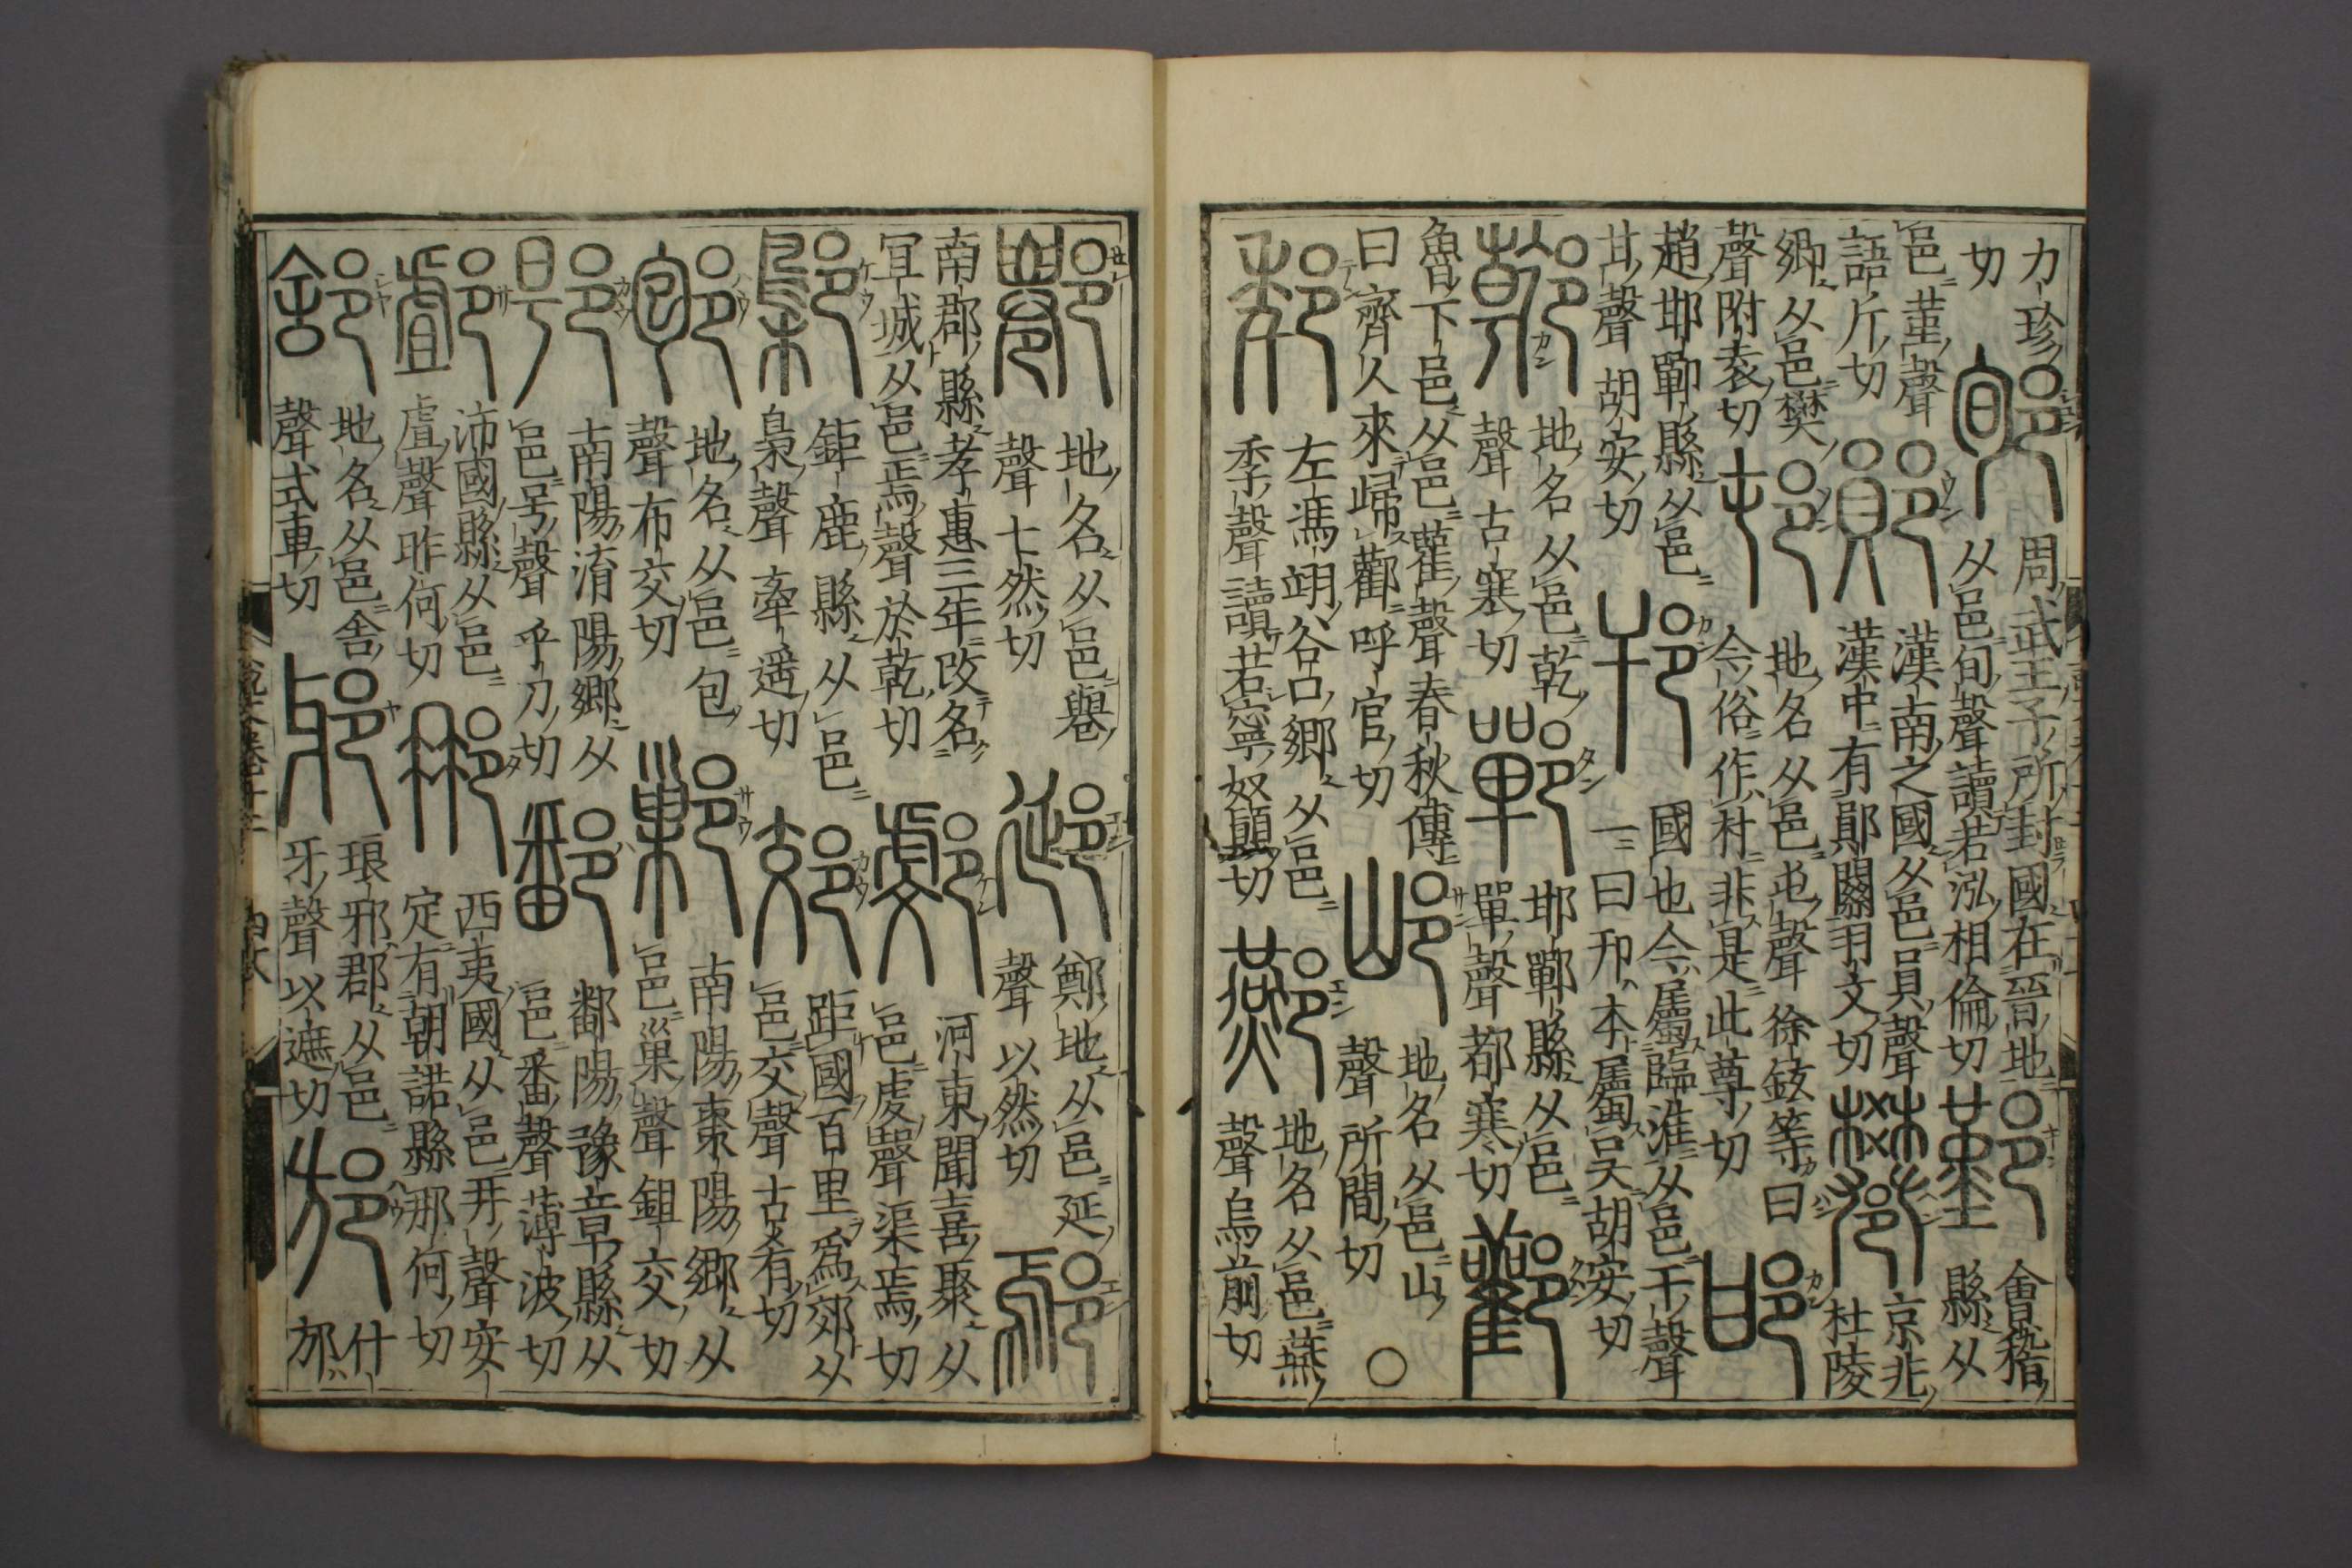 力珍
切
郇
周武王子所封國在晉地
从邑旬聲讀若泓相倫切
鄞
會稽
縣从
邑堇聲
語斤切
鄖
漢南之國从邑員聲
漢中有鄖關羽文切
京兆
杜陵
鄉从邑樊
聲附袁切
邨
地名从邑屯聲徐鉉等曰
今俗作村非是此尊切
邯
趙邯鄲縣从邑
甘聲胡安切
邗
國也今屬臨淮从邑干聲
一曰邗本屬吳胡安切
地名从邑乾
聲古寒切
鄲
邯鄲縣从邑
單聲都寒切
酄
魯下邑从邑雚聲春秋傳
曰齊人來歸酄呼官切
地名从邑山
聲所間切
〇
左馮翊谷口鄉从邑
季聲讀若寧奴顚切
酀
地名从邑燕
聲烏前切
地名从邑
聲七然切
郔
鄭地从邑延
聲以然切
鄢
南郡縣孝惠三年改名
冝城从邑焉聲於乾切
河東聞喜聚从
邑虔聲渠焉切
鄡
鉅鹿縣从邑
梟聲牽遥切
郊
距國百里爲郊从
邑交聲古肴切
地名从邑包
聲布交切
鄛
南陽棗陽鄉从
邑巢聲鉏交切
南陽淯陽鄉从
邑号聲乎刀切
鄱
鄱陽豫章縣从
邑番聲薄波切
沛國縣从邑
虘聲昨何切
西夷國从邑冄聲安
定有朝諾縣那何切
地名从邑舍
聲式車切
邪
琅邪郡从邑
牙聲以遮切
邡
什
邡